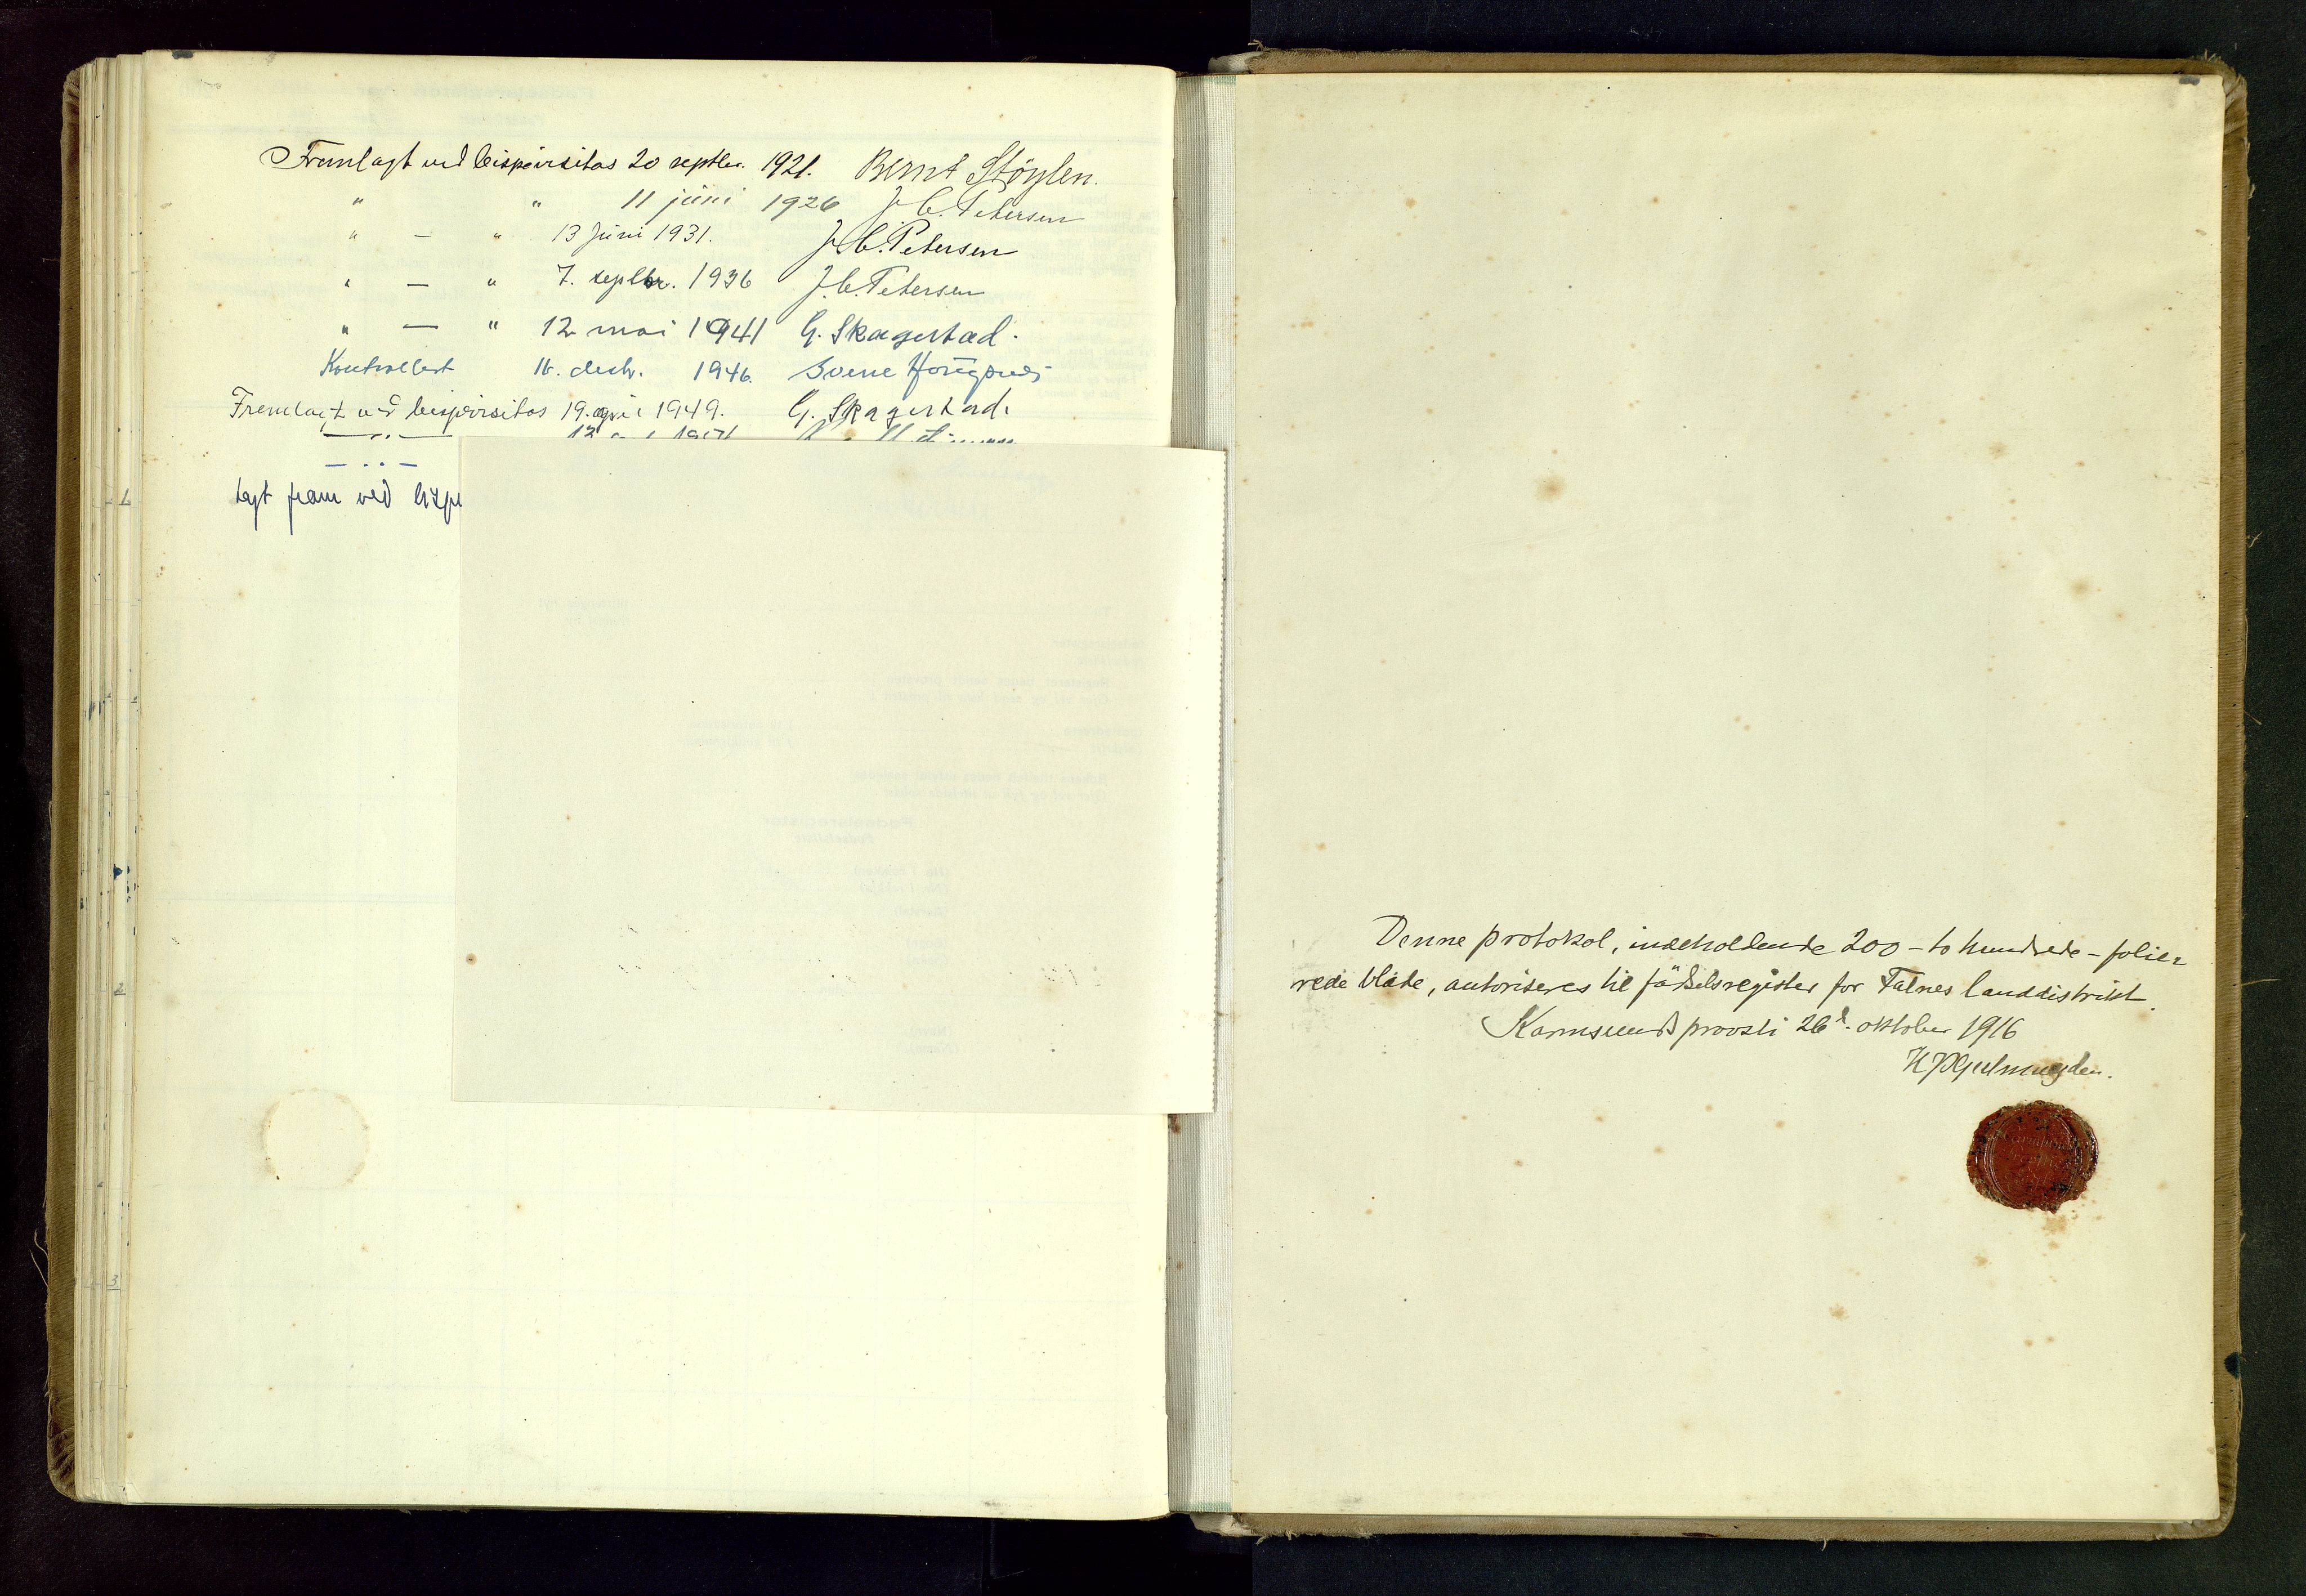 Fremlagt ved bispevisitas 20 septbr. 1921. Bernt Støylen.
" " 11 juni 1926 J. C. Petersen
" — " 13 juni 1931. J. C. Petersen
" — " 7. septbr. 1936 J. C. Petersen
" — " 12 mai 1941 G. Skagestad.
Kontrollert 16. desbr. 1946. Sverre
Fremlagt ved bispevisitas 19. april 1949. G. Skagestad.
— " —
— " —
Lagt fram ved
1
2
3
Denne protokol, indeholdende 200 – to hundrede – folie-
rede blade, autoriseres til fødselsregister for Falnes landdistrikt.
Karmsunds provsti 26d. oktober 1916